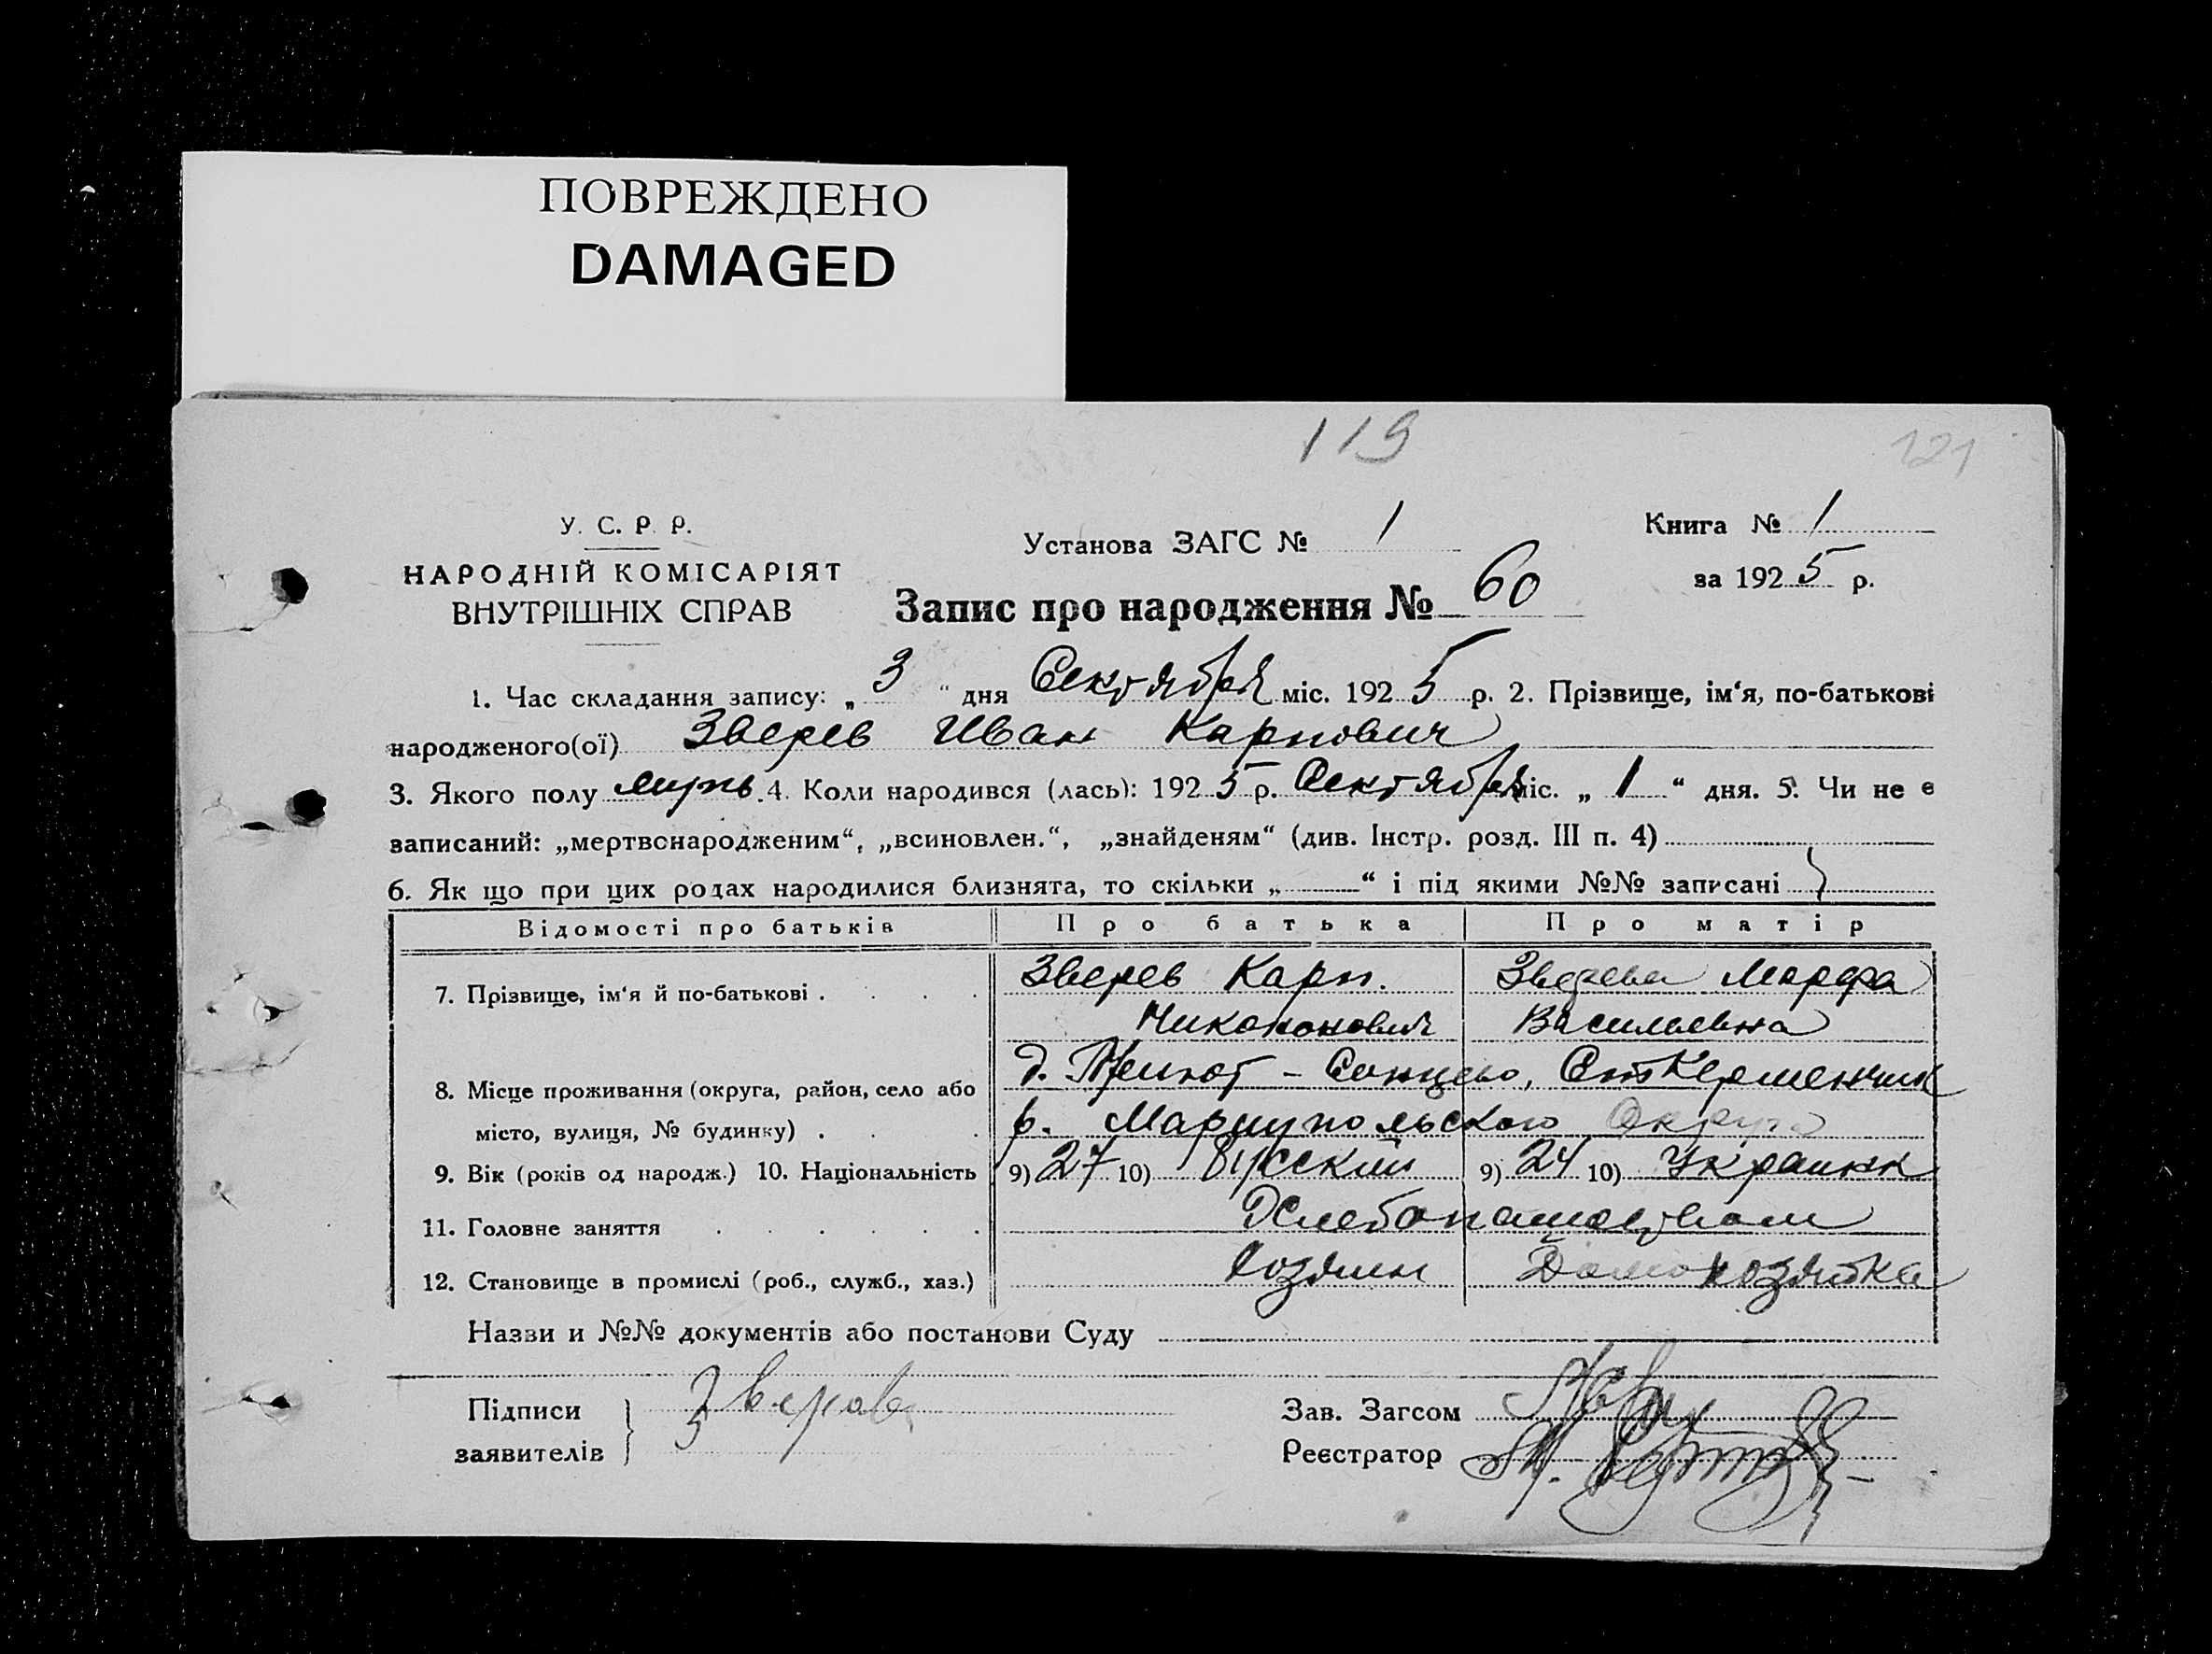 ПОВРЕЖДЕНО
DAMAGED
119
121
У. С. Р. Р.
НАРОДНІЙ КОМІСАРІЯТ
ВНУТРІШНІХ СПРАВ
Установа ЗАГС № 1
Книга № 1
за 1925 р.
Запис про народження № 60
1. Час складання запису: „ 3 “ дня Сентября міс. 1925 р. 2. Прізвище, ім‘я, по-батькові
народженого(ої) Зверев Иван Карпович
3. Якого полу 4. Коли народився (лась): 1925 р. Сентября міс. „ 1 “ дня. 5. Чи не є
записаний: „мертвонародженим“, „всиновлен.“, „знайденям“ (див. Інстр. розд. III п. 4)
6. Як що при цих родах народилися близнята, то скільки „ “ і під якими №№ записані
Відомості про батьків Про батька Про матір
7. Прізвище, ім‘я й по-батькові . . . . Зверев Карп. Зверева Марфа
Никононович Васильевна
8. Місце проживання (округа, район, село або д. Приют - Сонцево, Керменчик
місто, вулиця, № будинку) . . . р. Мариупольского Округа
9. Вік (років од народж.) 10. Національність 9) 27 10) Русский 9) 24 10) Украинк
11. Головне заняття . . . . . . Хлебопашеством
12. Становище в промислі (роб., служб., хаз.) хозяин Домохозяйка
Назви и №№ документів або постанови Суду
Підписи
заявителів
Зверев
Зав. Загсом
Реєстратор